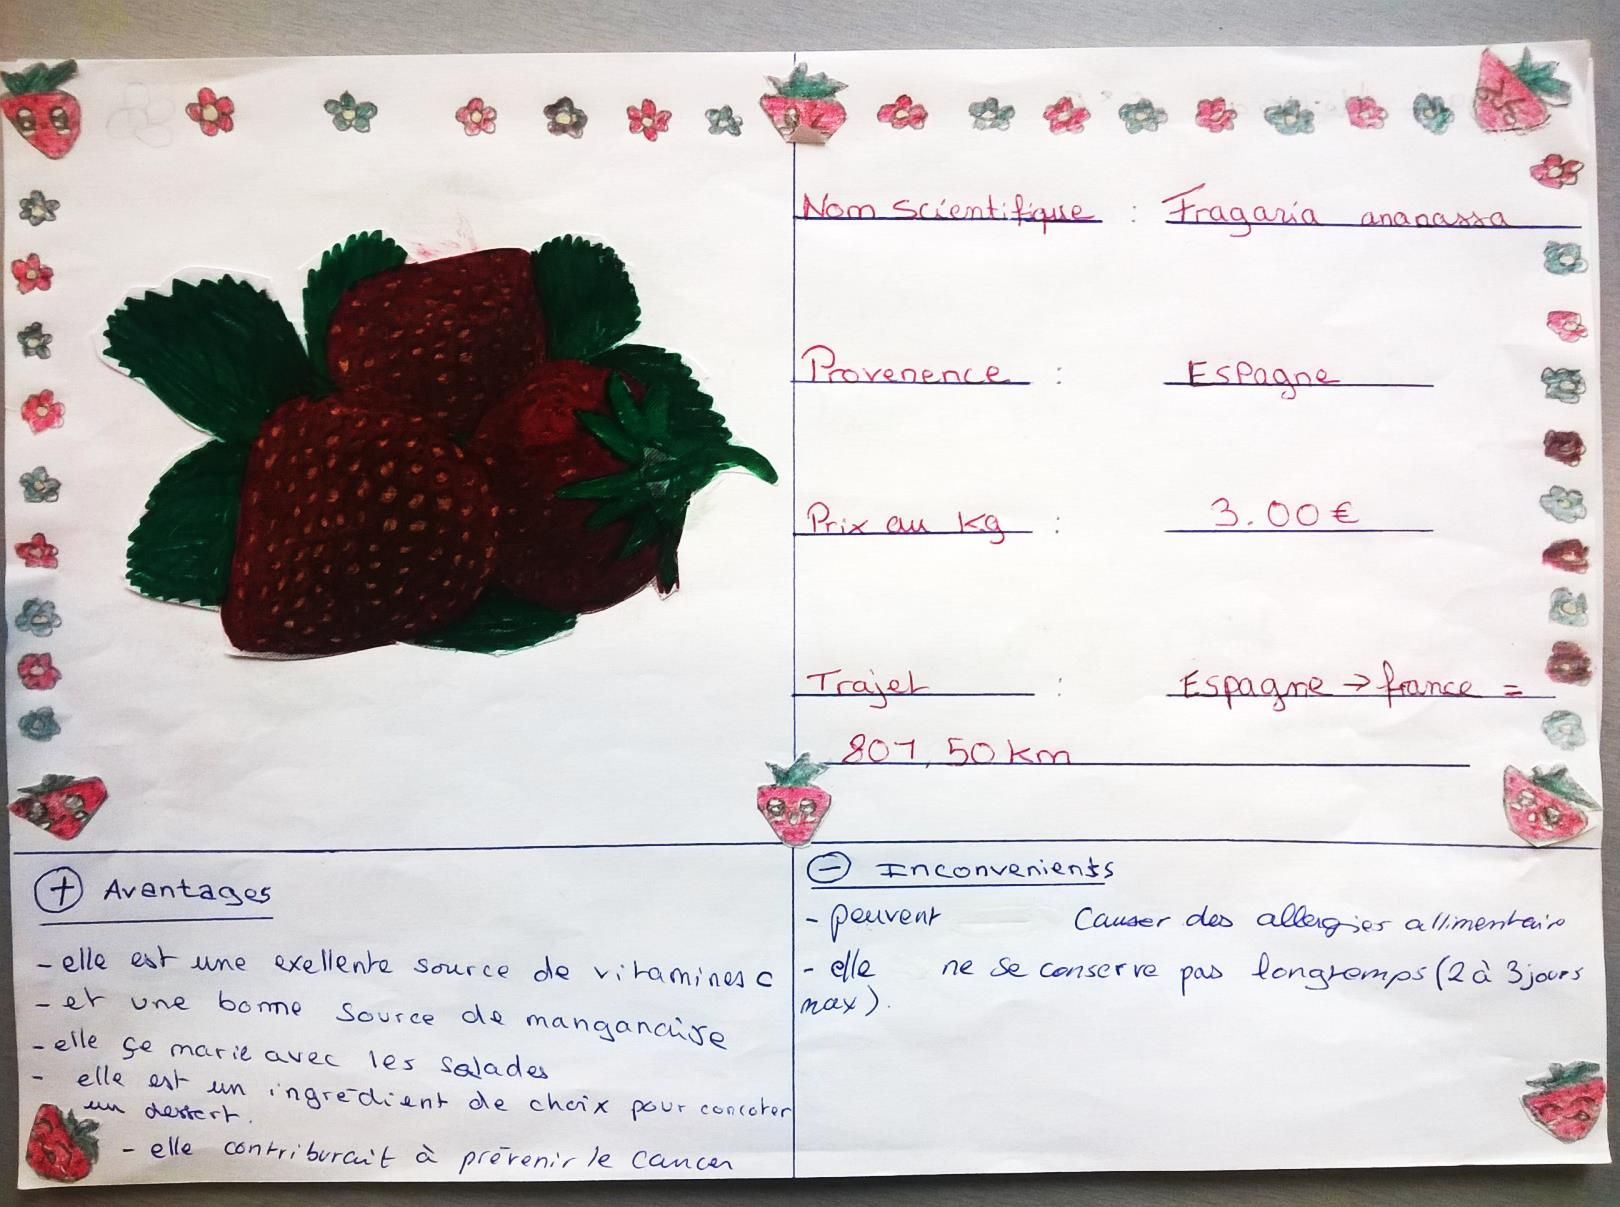 Nom Scientifique : Fragaria ananassa
Provenence : Espagne
Prix au kg : 3.00€
Trajet : Espagne → france =
807,50 km
+ Avantages
- elle est une exellente source de vitamines c
- et une bonne source de manganaise
- elle çe marie avec les salades
- elle est un ingrédient de choix pour concoter
un dessert.
- elle contriburait à prévenir le cancer
- Inconvenients
- peuvent causer des allergies allimentaire
- elle ne se conserve pas longtemps (2 à 3 jours
max).